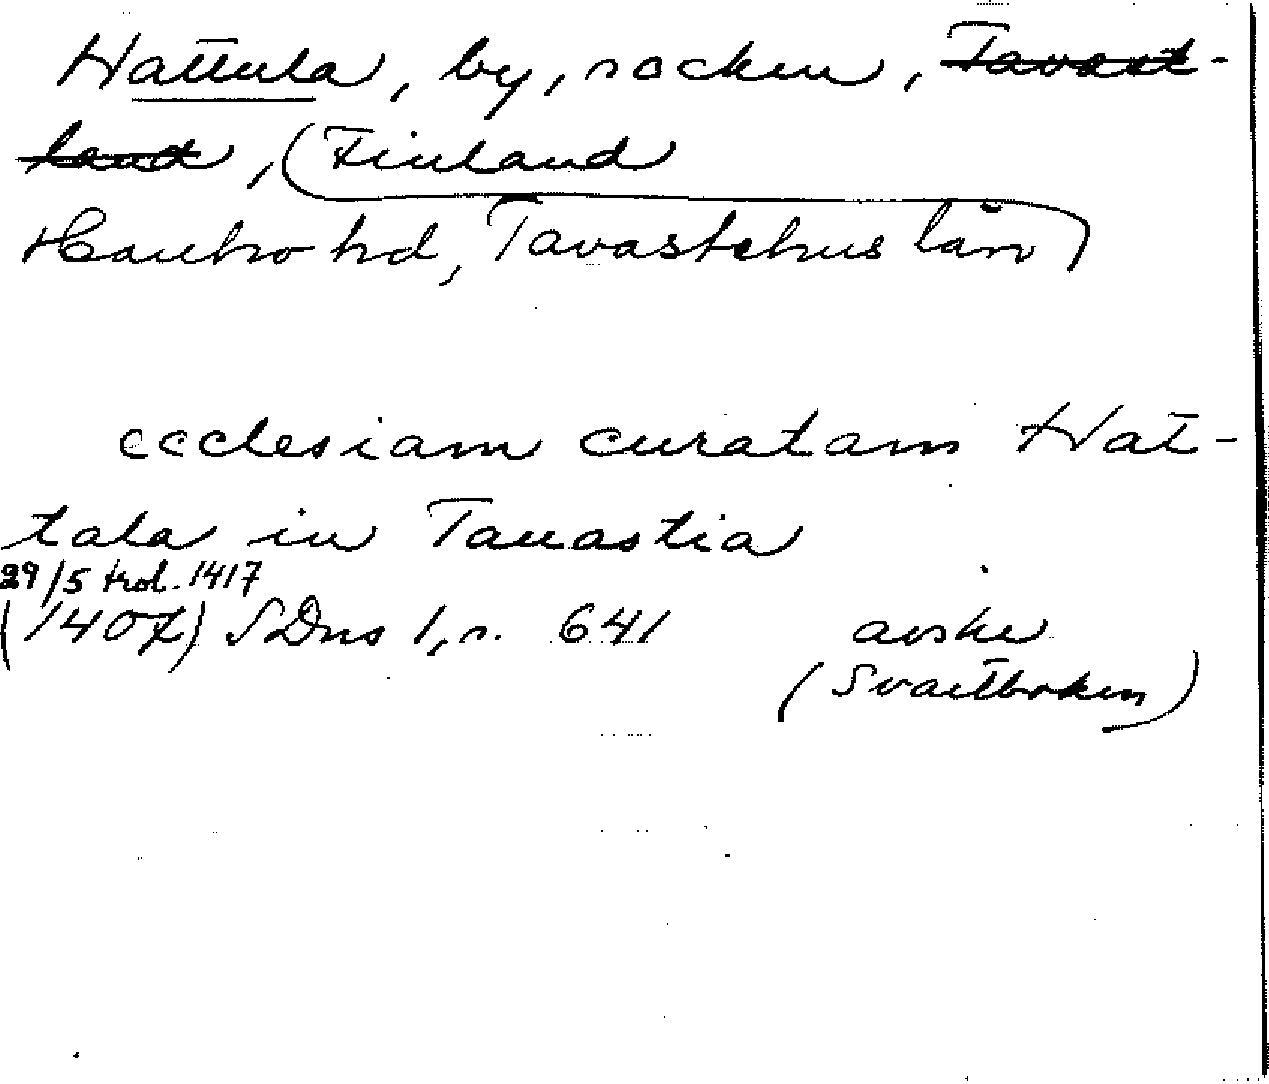 Hattula, by, socken, Tavast-
land, (Finland
Hauho hd, Tavastehus län)
ecclesiam curatam Hat-
tala in Tauastia
29/5 trol. 1417
(1407) SDns 1, s. 641 avskr
(Svartboken)